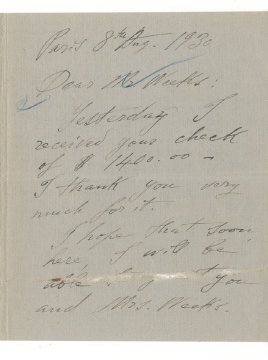 Paris 8th Aug. 1930
Dear Mr Weeks:
Yesterday I
received your check
of $ 1400.00 –
I thank you very
much for it.
I hope that soon
here I will be
able to you
and Mrs. Weeks.